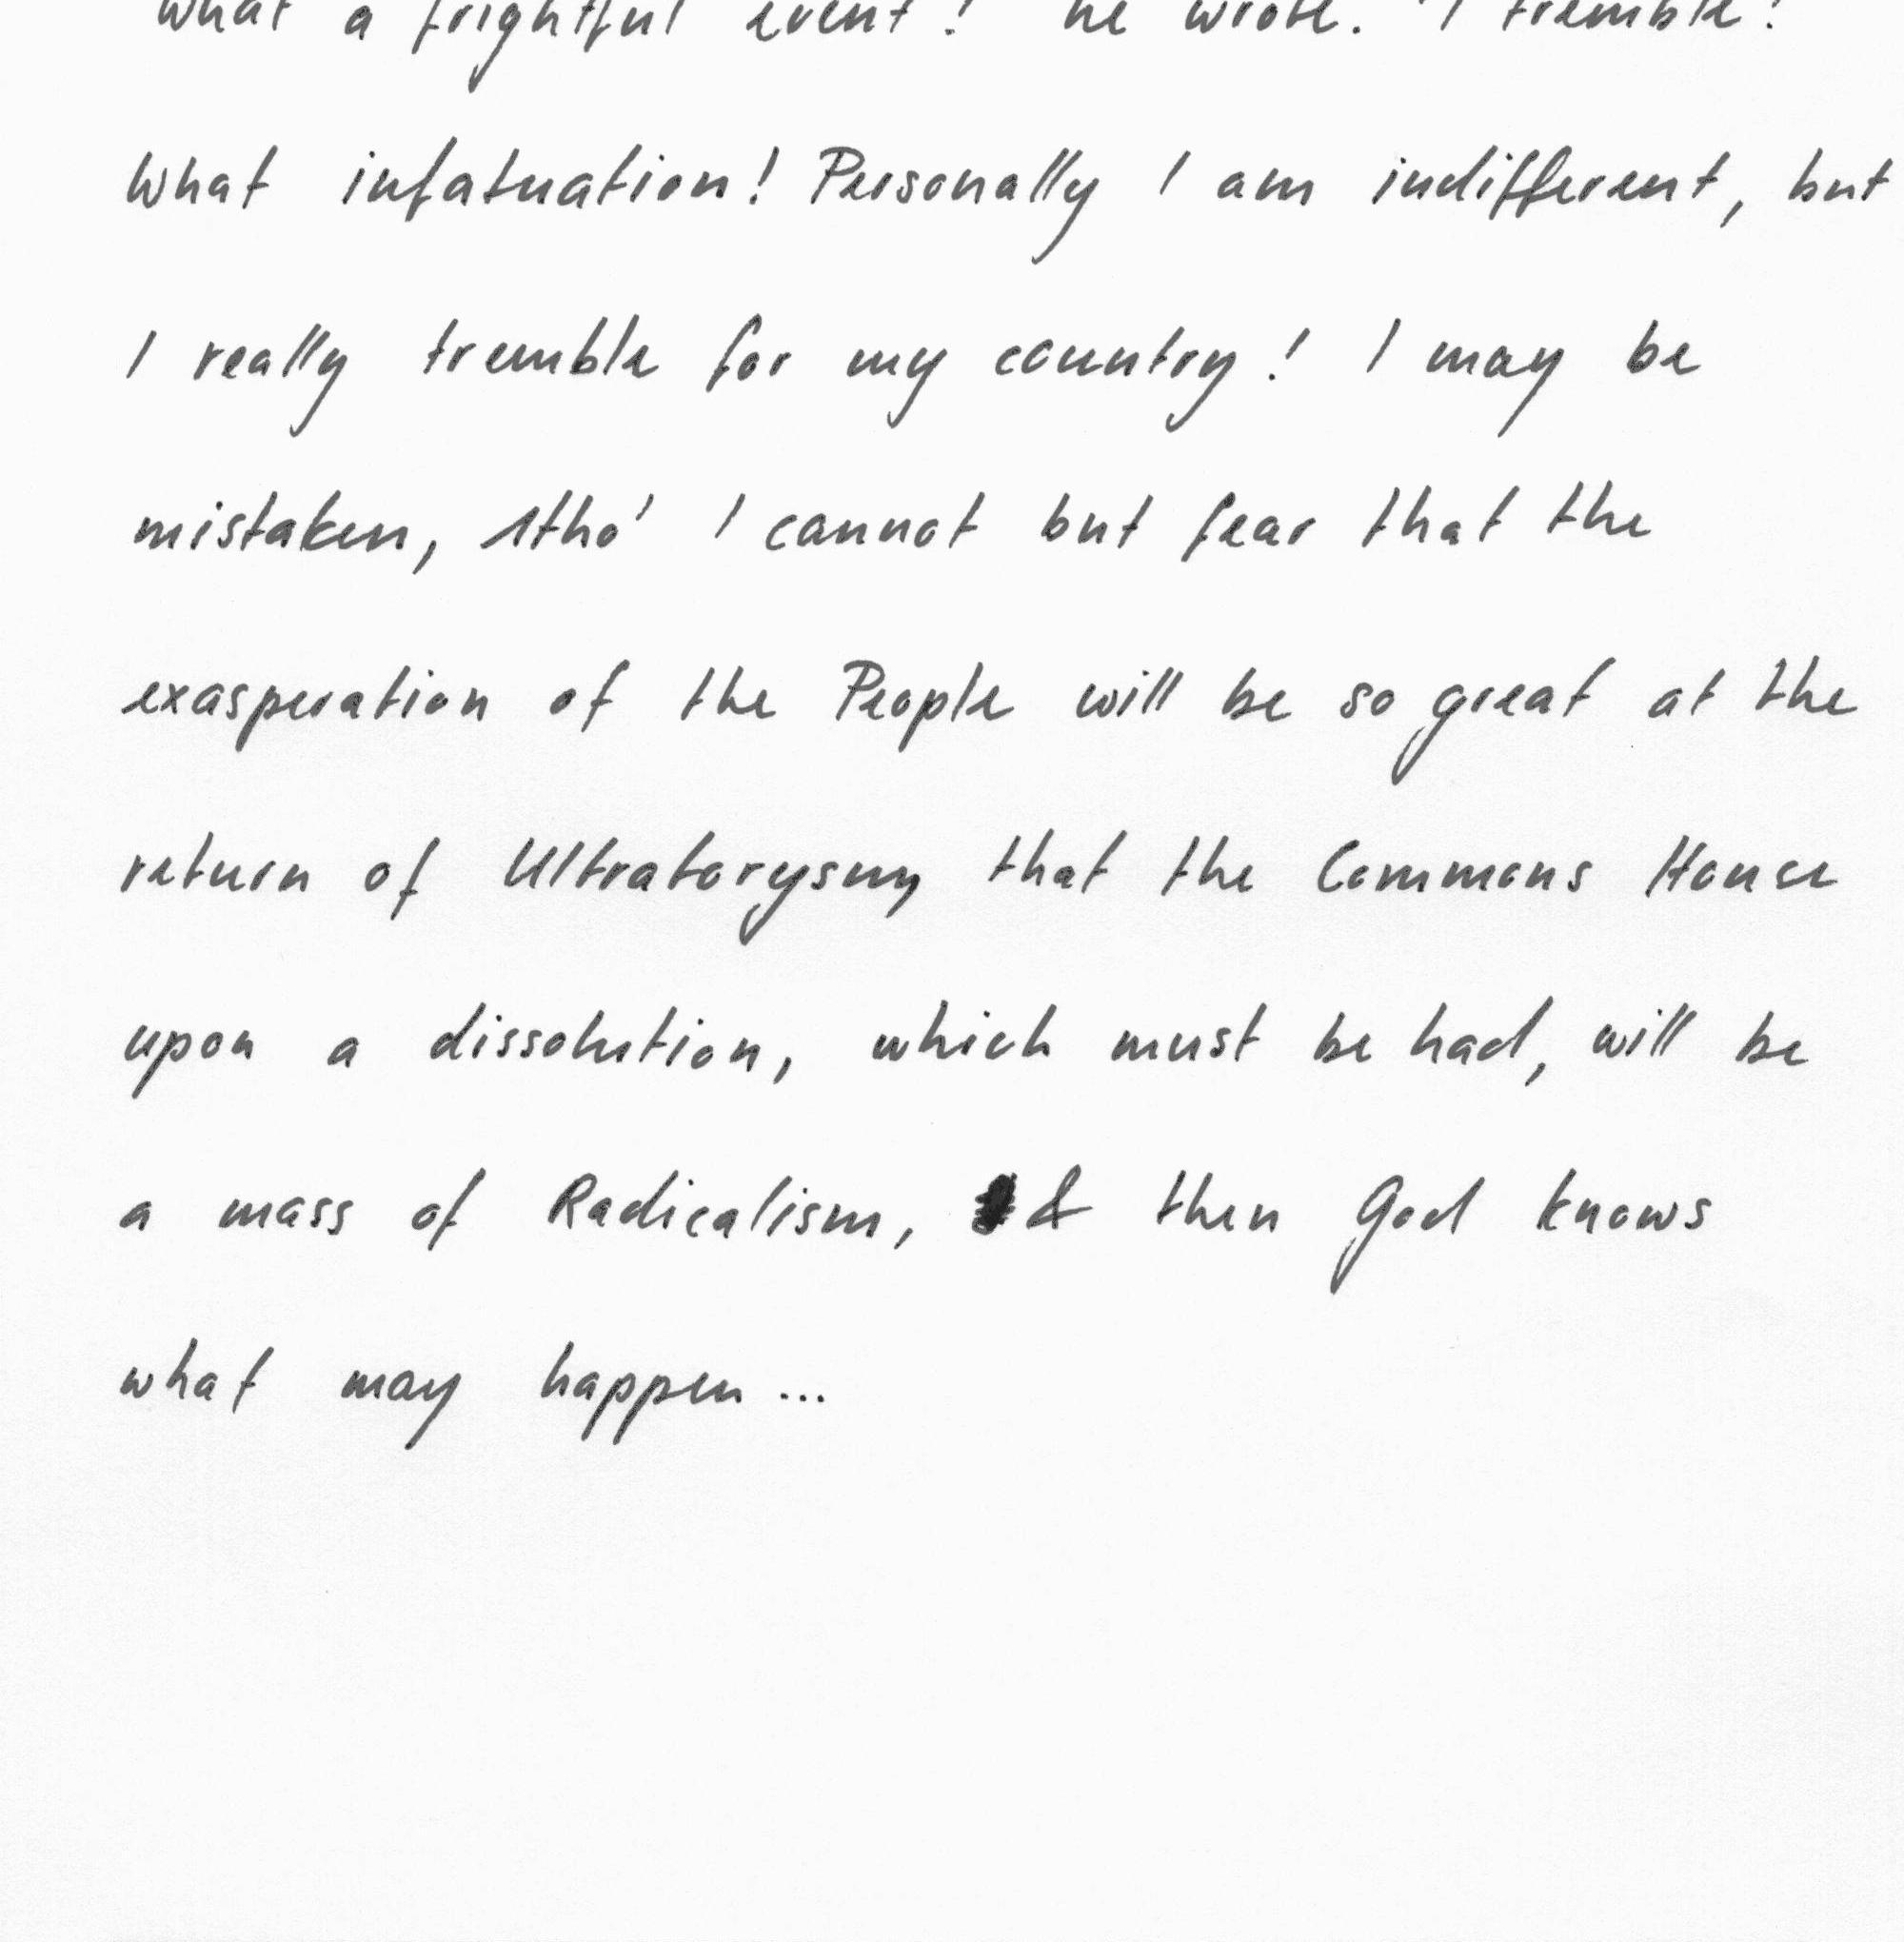 What a frightful event! he wrote. 'I tremble!
What infatuation! Personally I am indifferent, but
I really tremble for my country! I may be
mistaken, 1tho' I cannot but fear that the
exasperation of the People will be so great at the
return of Ultratorysm that the Commons House
upon a dissolution, which must be had, will be
a mass of Radicalism, & then God knows
what may happen...